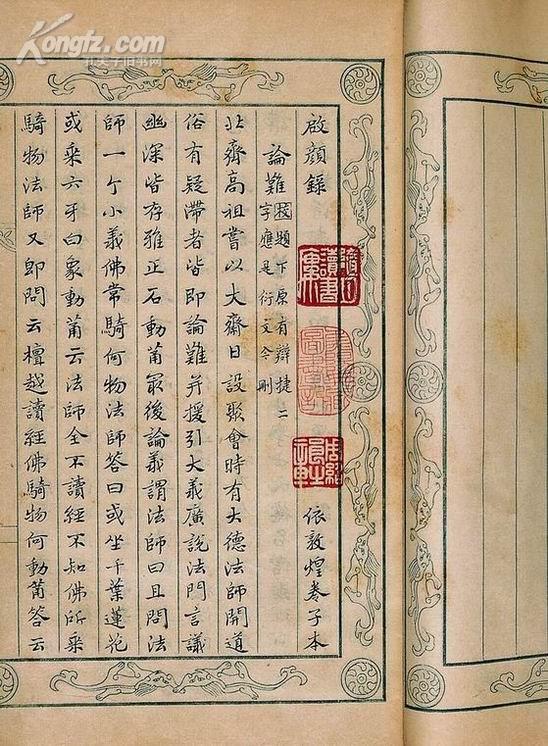 Kongfz.com
孔夫子旧书网
啟顏錄
依敦煌卷子本
論難
校題下原有辯捷二
字應是衍文今刪
北齊高祖嘗以大齋日設聚會時有大德法師開道
俗有疑滯者皆即論難并援引大義廣說法門言議
幽深皆存雅正石動莆最後論義謂法師曰且問法
師一个小義佛常騎何物法師答曰或坐千葉蓮花
或乘六牙白象動莆云法師全不讀經不知佛所乘
騎物法師又即問云檀越讀經佛騎物何動莆答云